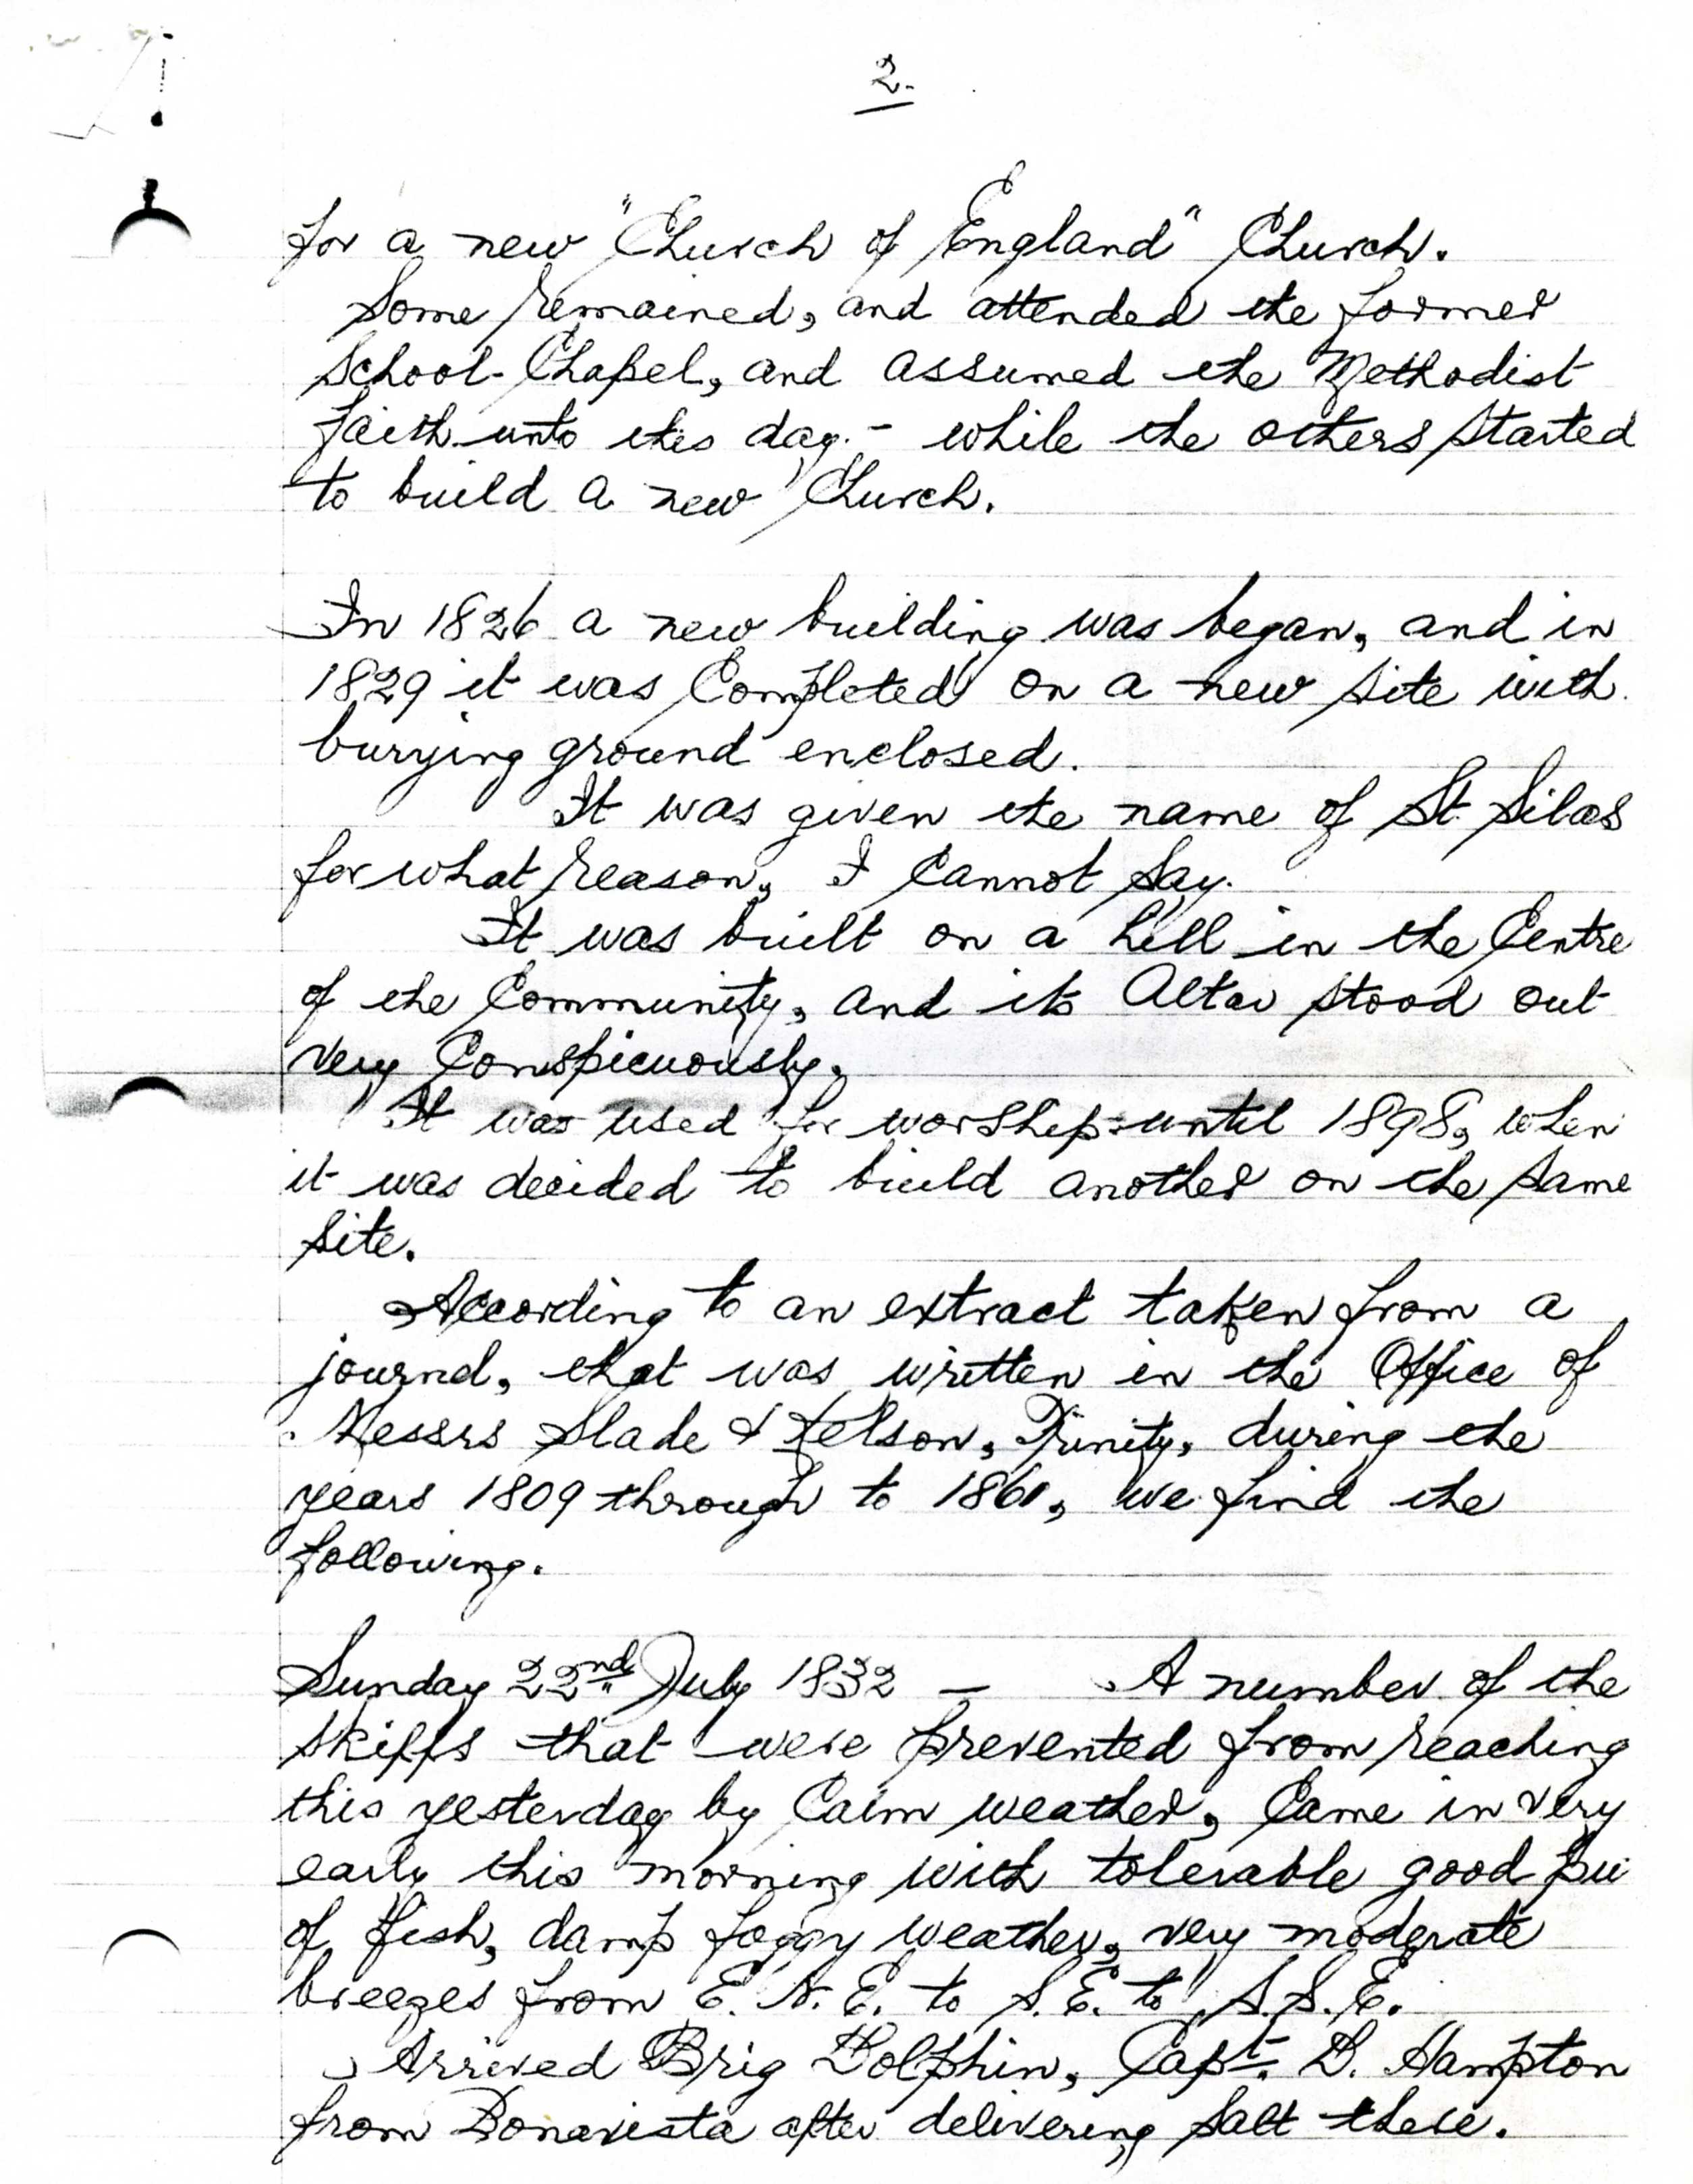 2.
for a new "Church of England" Church.
Some remained, and attended the former
School-Chapel, and assumed the Methodist
faith unto this day - while the others started
to build a new Church.
In 1826 a new building was began, and in
1829 it was Completed on a new site with
burying ground enclosed.
It was given the name of St Silas
for what reason, I Cannot Say.
It was built on a hill in the Centre
of the Community, and its Altar stood out
very Conspicuously.
It was used for worship until 1898, when
it was decided to build another on the same
site.
According to an extract taken from a
journal, that was written in the Office of
Messrs Slade & Kelson, Trinity, during the
years 1809 through to 1861, we find the
following.
Sunday 22nd July 1832 — A number of the
skiffs that were prevented from reaching
this yesterday by Calm weather, Came in very
early this morning with tolerable good
of fish, damp foggy weather, very moderate
breezes from E. N. E. to S. E. to S. S. E.
Arrived Brig Dolphin, Capt. D. Hampton
from Bonavista after delivering Salt there.